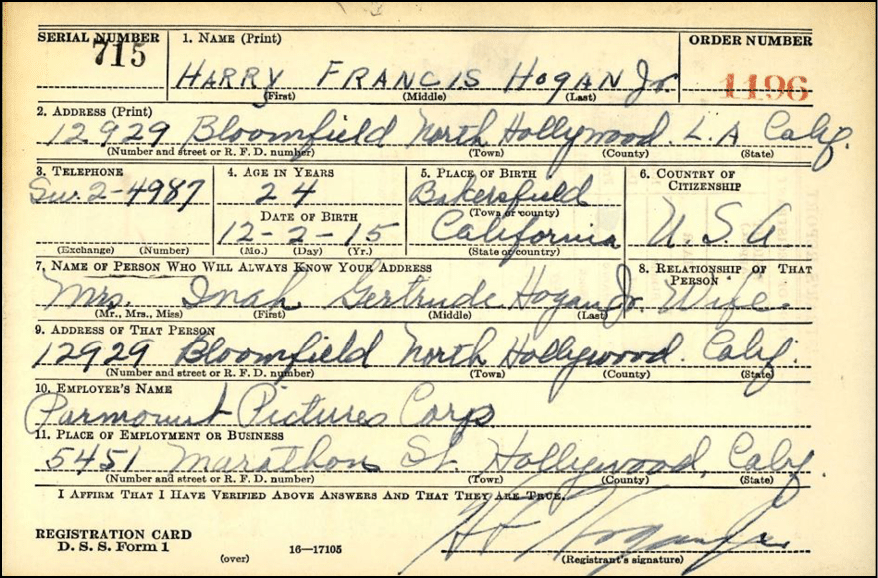 SERIAL NUMBER 1. NAME (Print) ORDER NUMBER
715 HARRY FRANCIS HOGAN Jr. 1196
(First) (Middle) (Last)
2. ADDRESS (Print)
12929 Bloomfield North Hollywood. L.A Calif.
(Number and street or R. F. D. number) (Town) (County) (State)
3. TELEPHONE 4. AGE IN YEARS 5. PLACE OF BIRTH 6. COUNTRY OF CITIZENSHIP
Su. 2-4987 24 Bakersfield
DATE OF BIRTH (Town or county)
12-2-15 California U.S.A.
(Exchange) (Number) (Mo.) (Day) (Yr.) (State or country)
7. NAME OF PERSON WHO WILL ALWAYS KNOW YOUR ADDRESS 8. RELATIONSHIP OF THAT PERSON
Mrs. Inah Gertrude Hogan Jr. Wife.
(Mr., Mrs., Miss) (First) (Middle) (Last)
9. ADDRESS OF THAT PERSON
12929 Bloomfield North Hollywood. Calif.
(Number and street or R. F. D. number) (Town) (County) (State)
10. EMPLOYER'S NAME
Parmount Pictures Corps
11. PLACE OF EMPLOYMENT OR BUSINESS
5451 Marathon St. Hollywood, Calif.
(Number and street or R. F. D. number) (Town) (County) (State)
I AFFIRM THAT I HAVE VERIFIED ABOVE ANSWERS AND THAT THEY ARE TRUE.
REGISTRATION CARD H F Hogan Jr.
D. S. S. Form 1 (over) 16—17105 (Registrant's signature)